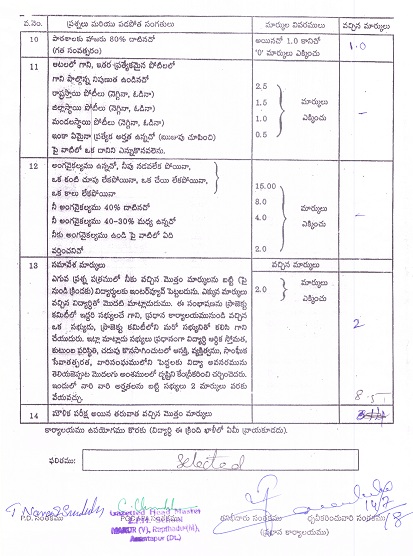 వ.నెం. ప్రశ్నలు మరియు పడపోత సంగతులు మార్కుల వివరములు వచ్చిన మార్కులు
10 పాఠశాలకు హాజరు 80% దాటినదో అయినచో 1.0 కానిచో 1.0
(గత సంవత్సరం) '0' మార్కులు ఎక్కించు
11 ఆటలలో గాని, ఇతర ప్రత్యేకమైన పోటీలలో
గాని పాల్గొన్న నిపుణత ఉండినదో 2.5
రాష్ట్రస్థాయి పోటీలు (నెగ్గినా, ఓడినా)
జిల్లాస్థాయి పోటీలు (నెగ్గినా, ఓడినా) 1.5 మార్కులు
మండలస్థాయి పోటీలు (నెగ్గినా, ఓడినా) 1.0 ఎక్కించు –
ఇంకా ఏమైనా ప్రత్యేక అర్హత ఉన్నదో (ఋజువు చూపించి) 0.5
పై వాటిలో ఒక దానిని ఎన్నుకొనవలెను.
12 అంగవైకల్యము ఉన్నదో, నీవు నడవలేక పోయినా,
ఒక కంటి చూపు లేకపోయినా, ఒక చేయి లేకపోయినా,
ఒక కాలు లేకపోయినా 16.00
నీ అంగవైకల్యము 40% దాటినదో 8.0 మార్కులు
నీ అంగవైకల్యము 40-30% మధ్య ఉన్నదో 4.0 –
నీకు అంగవైకల్యము ఉండి పై వాటిలో ఏది ఎక్కించు
వర్తించనిచో 2.0
13 సమావేశ మార్కులు వచ్చిన మార్కులు
ఎగువ ప్రశ్న పత్రములో నీకు వచ్చిన మొత్తం మార్కులను బట్టి (పై
నుండి క్రిందకు) విద్యార్థులకు ఇంటర్వ్యూవ్ పెట్టబడును. ఎక్కువ మార్కులు 2.0 మార్కులు
వచ్చిన విద్యార్థితో మొదటి మాట్లాడుదుము. ఈ సంభాషణను ప్రాజెక్టు ఎక్కించు
కమిటీలో ఇద్దరి సభ్యులచే గాని, ప్రధాన కార్యాలయమునుండి వచ్చిన
ఒక సభ్యుడు, ప్రాజెక్టు కమిటీలోని మరో సభ్యునితో కలిసి గాని 2
చేయుదురు. ఇట్లా మాట్లాడు సభ్యులు ప్రధానంగా విద్యార్థి ఆర్థిక స్తోమత,
కుటుంబ పరిస్థితి, చదువు కొనసాగించుటలో ఆసక్తి, వ్యక్తిత్వము, సాంఘిక
తెలియజెప్పుట మొదలగు అంశములలో దృష్టిని కేంద్రీకరించి చర్చించెదరు.
ఇందులో వారి వారి అర్హతలను బట్టి సభ్యులు 2 మార్కులు వరకు
వేయవచ్చు.
14 మౌళిక పరీక్ష అయిన తరువాత వచ్చిన మొత్తం మార్కులు
కార్యాలయము ఉపయోగము కొరకు (విద్యార్థి ఈ క్రింది ఖాళీలో ఏమీ వ్రాయకూడదు).
ఫలితము: Selected
P.D. సంతకము
Gazetted Head Master
(V), Rapthadu(M),
Anantapur (DL)
(ప్రధాన కార్యాలయము)